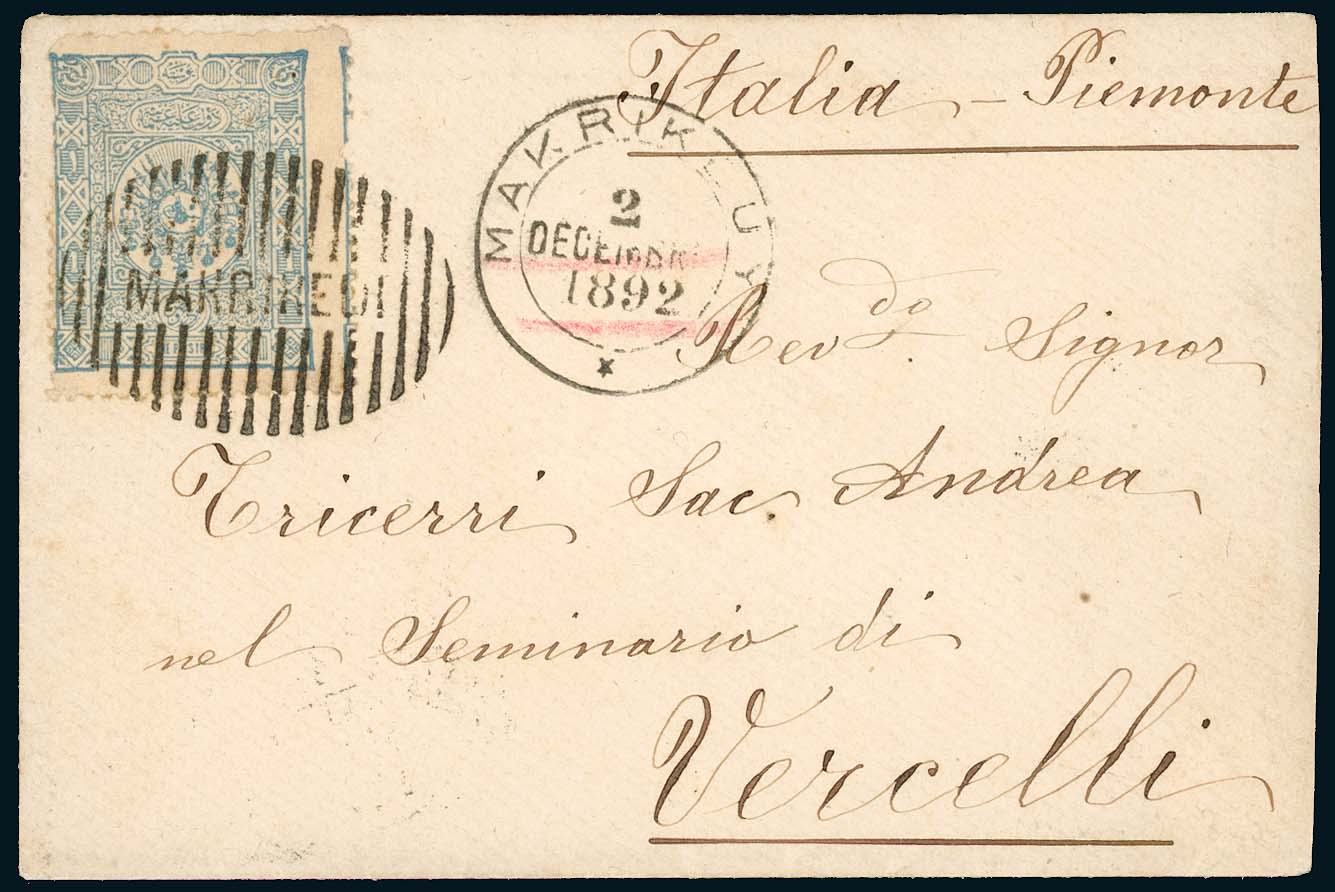 Italia – Piemonte
MAKRIKLUY
2
DECEMBR
1892
MAKRIKEUI
Rev.do Signor
Tricerri Sac. Andrea
nel Seminario di
Vercelli